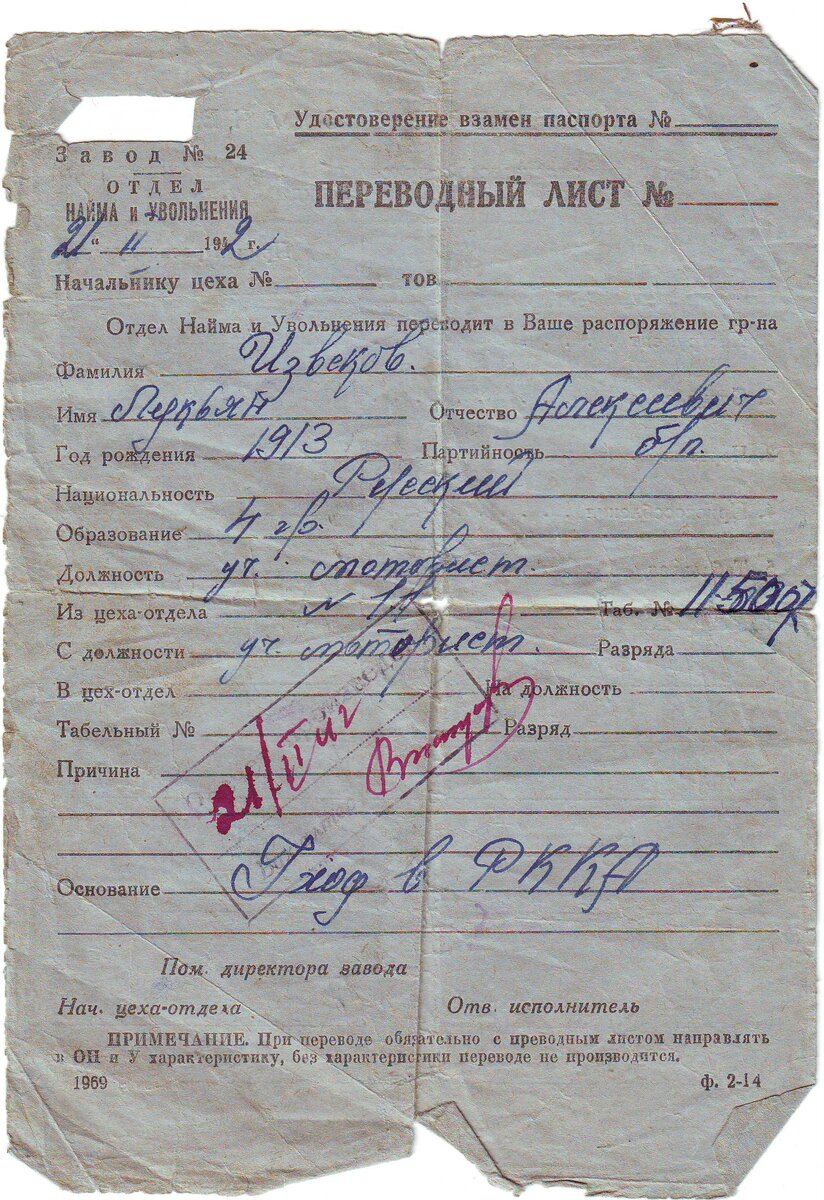 Удостоверение взамен паспорта №
Завод № 24
ОТДЕЛ
НАЙМА и УВОЛЬНЕНИЯ
ПЕРЕВОДНЫЙ ЛИСТ №
21 " II 1942 г.
Начальнику цеха № тов
Отдел Найма и Увольнения переводит в Ваше распоряжение гр-на
Фамилия Извеков.
Имя Лукьян Отчество Алексеевич
Год рождения 1913 Партийность б/п.
Национальность Русский
Образование 4 гр.
Должность уч. моторист.
Из цеха-отдела № 11 Таб. № 11-5007
С должности уч. моторист. Разряда
В цех-отдел На должность
Табельный № Разряд
Причина
21/II 42
Основание в РККА
Пом. директора завода
Нач. цеха-отдела Отв. исполнитель
ПРИМЕЧАНИЕ. При переводе обязательно с преводным листом направлять
в ОН и У характеристику, без характеристики переводе не производится.
1969 ф. 2-14